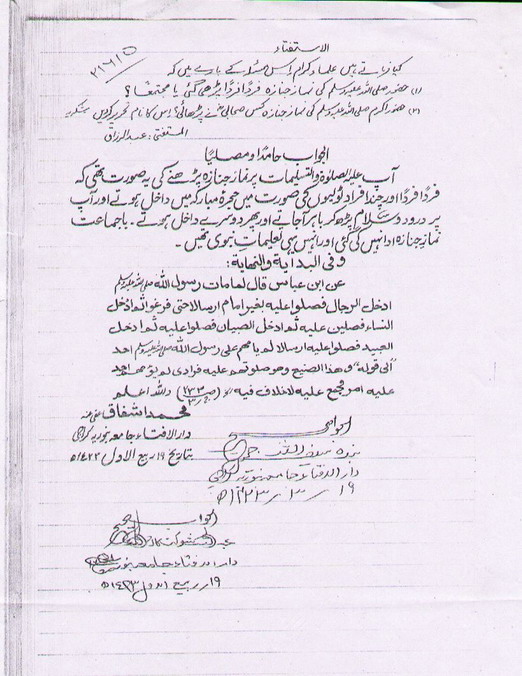 الاستفتاء
۲۱۶۱۵
کیا فرماتے ہیں علماء کرام اس مسئلہ کے بارے میں کہ
(۱) حضور صلی اللہ علیہ وسلم کی نماز جنازہ فرداً فرداً پڑھی گئی یا مجتمعاً؟
(۲) حضور اکرم صلی اللہ علیہ وسلم کی نماز جنازہ کس صحابی نے پڑھائی؟ اس کا نام تحریر کریں شکریہ
المستفتی: عبدالرزاق
الجواب حامداً ومصلیاً
آپ علیہ الصلوٰۃ والتسلیمات پر نماز جنازہ پڑھنے کی یہ صورت تھی کہ
فرداً فرداً اور چند افراد ٹولیوں کی صورت میں حجرۂ مبارکہ میں داخل ہوتے اور آپ
پر درود وسلام پڑھ کر باہر آجاتے اور پھر دوسرے داخل ہوتے۔ باجماعت
نماز جنازہ ادا نہیں کی گئی اور انہیں یہی تعلیمات نبوی تھیں۔
وفی البدایۃ والنہایۃ:
عن ابن عباس قال لما مات رسول اللہ صلی اللہ علیہ وسلم
ادخل الرجال فصلوا علیه بغیر امام ارسالا حتی فرغوا ثم ادخل
النساء فصلین علیه ثم ادخل الصبیان فصلوا علیه ثم ادخل
العبید فصلوا علیه ارسالا لم یؤمهم علی رسول اللہ صلی اللہ علیہ وسلم احد
"الی قوله" وهذا الصنیع وهو صلوتهم علیه فرادی لم یؤمهم احد
علیه امر مجمع علیه لاخلاف فیه واللہ اعلم
محمد اشفاق عفی عنہ
دار الافتاء جامعہ بنوریہ کراچی
بتاریخ ۱۹ ربیع الاول ۱۴۲۳ھ
الجواب صحیح
دار الافتاء جامعہ بنوریہ کراچی
۱۹ / ۳ / ۱۴۲۳ھ
الجواب صحیح
دار الافتاء جامعہ بنوریہ
۱۹ ربیع الاول ۱۴۲۳ھ